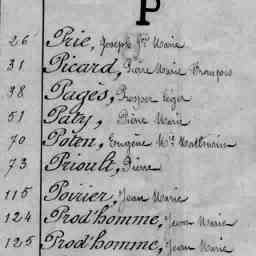 P
26 Prie, Joseph Jn Marie
31 Picard, Pierre Marie François
38 Pagès, Prosper Léger
51 Paty, Pierre Marie
70 Poten, Eugène Mie Mathurin
73 Prioult, Pierre
115 Poirier, Jean Marie
124 Prod'homme, Jean Marie
125 Prod'homme, Jean Marie